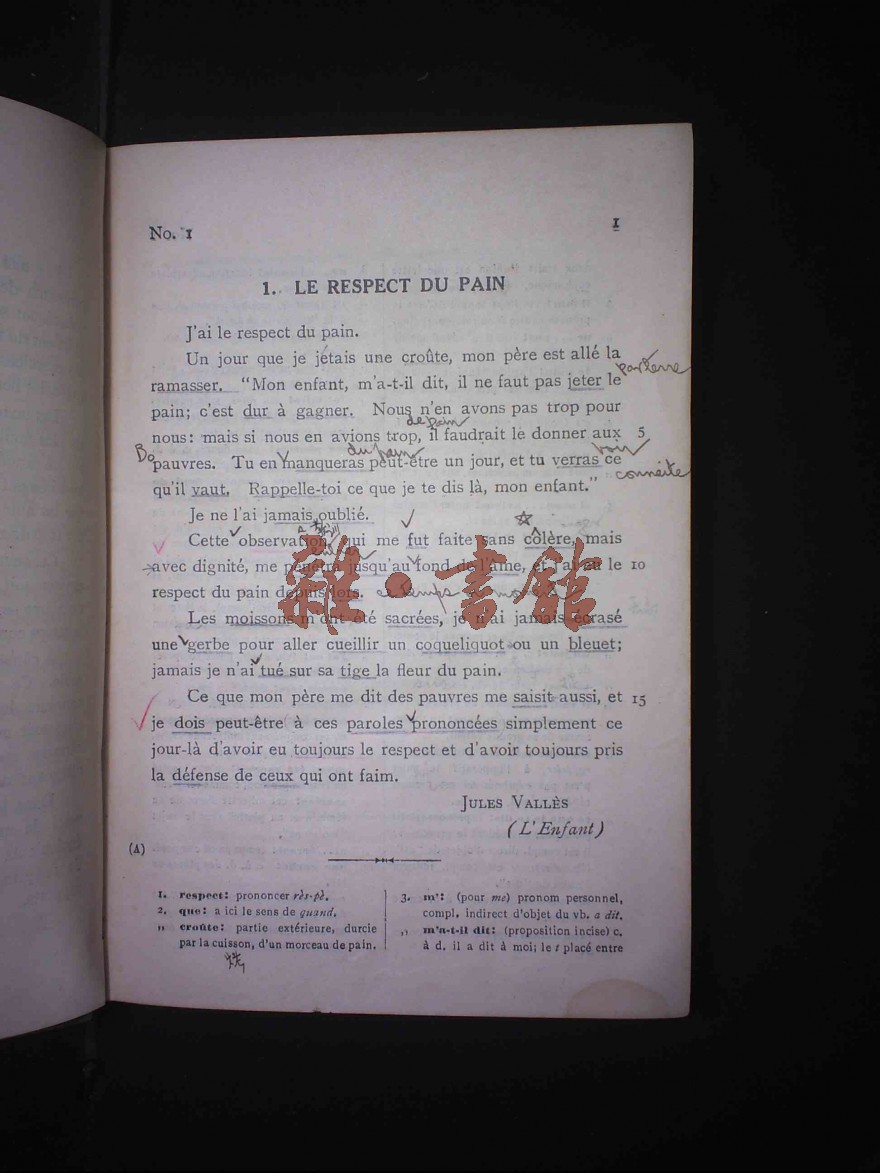 No. 1
1
1. LE RESPECT DU PAIN
J'ai le respect du pain.
Un jour que je jetais une croûte, mon père est allé la
par terre
ramasser. “Mon enfant, m'a-t-il dit, il ne faut pas jeter le
pain; c'est dur à gagner. Nous n'en avons pas trop pour
de pain
nous: mais si nous en avions trop, il faudrait le donner aux 5
du pain
voir
pauvres. Tu en manqueras peut-être un jour, et tu verras ce
connaite
qu'il vaut. Rappelle-toi ce que je te dis là, mon enfant.”
Je ne l'ai jamais oublié.
Cette observation, qui me fut faite sans colère, mais
avec dignité, me pénétra jusqu'au fond de l'âme, et j'ai eu le 10
respect du pain depuis lors.
Les moissons m'ont été sacrées, je n'ai jamais écrasé
une gerbe pour aller cueillir un coquelicot ou un bleuet;
jamais je n'ai tué sur sa tige la fleur du pain.
Ce que mon père me dit des pauvres me saisit aussi, et 15
je dois peut-être à ces paroles prononcées simplement ce
jour-là d'avoir eu toujours le respect et d'avoir toujours pris
la défense de ceux qui ont faim.
JULES VALLÈS
(L'Enfant)
(A)
1. respect: prononcer rès-pè.
2. que: a ici le sens de quand.
„ croûte: partie extérieure, durcie
par la cuisson, d'un morceau de pain.
3. m': (pour me) pronom personnel,
compl. indirect d'objet du vb. a dit.
„ m'a-t-il dit: (proposition incise) c.
à d. il a dit à moi; le t placé entre
雜·書館